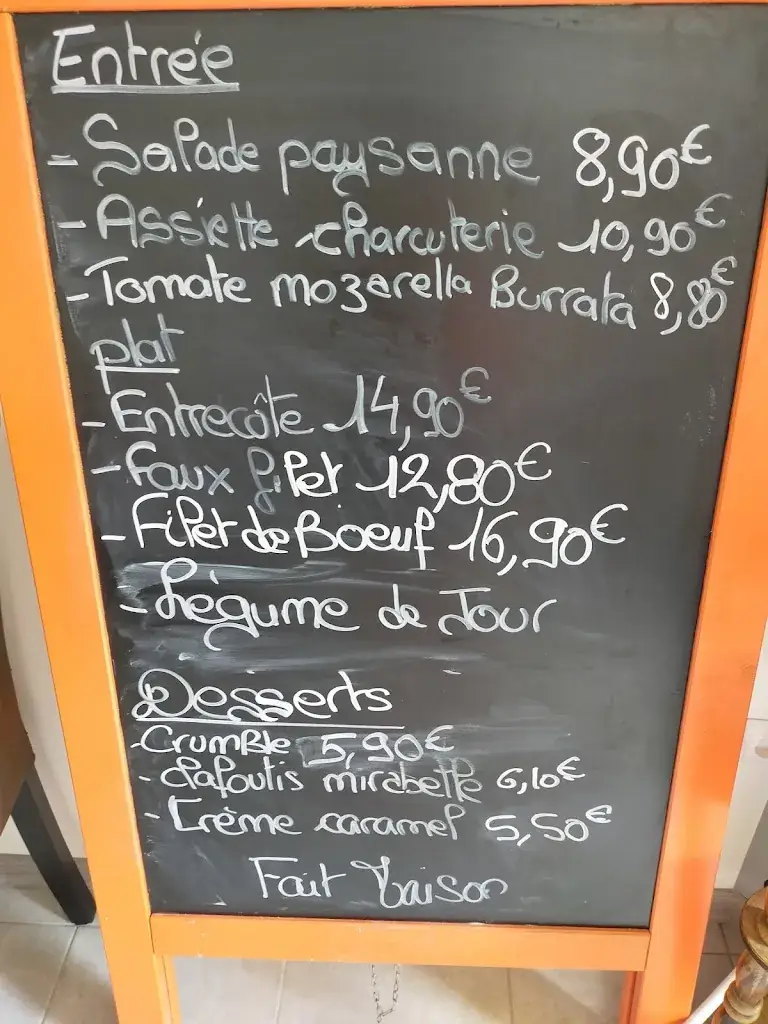 Entrée
- Salade paysanne 8,90€
- Assiette charcuterie 10,90€
- Tomate mozarella Burrata 8,80€
plat
- Entrecôte 14,90€
- Faux filet 12,80€
- Filet de Boeuf 16,90€
- Légume de Jour
Desserts
- Crumble 5,90€
- Clafoutis mirabelle 6,10€
- Crème caramel 5,50€
Fait Maison